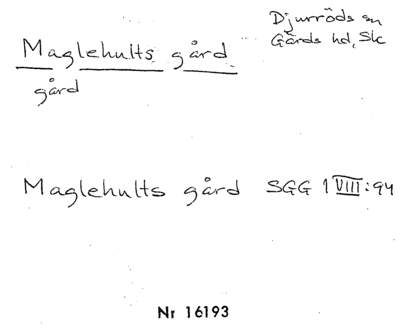 Djurröds sn
Gärds hd, Skc
Maglehults gård
gård
Maglehults gård SGG 1 VIII:94
Nr 16193